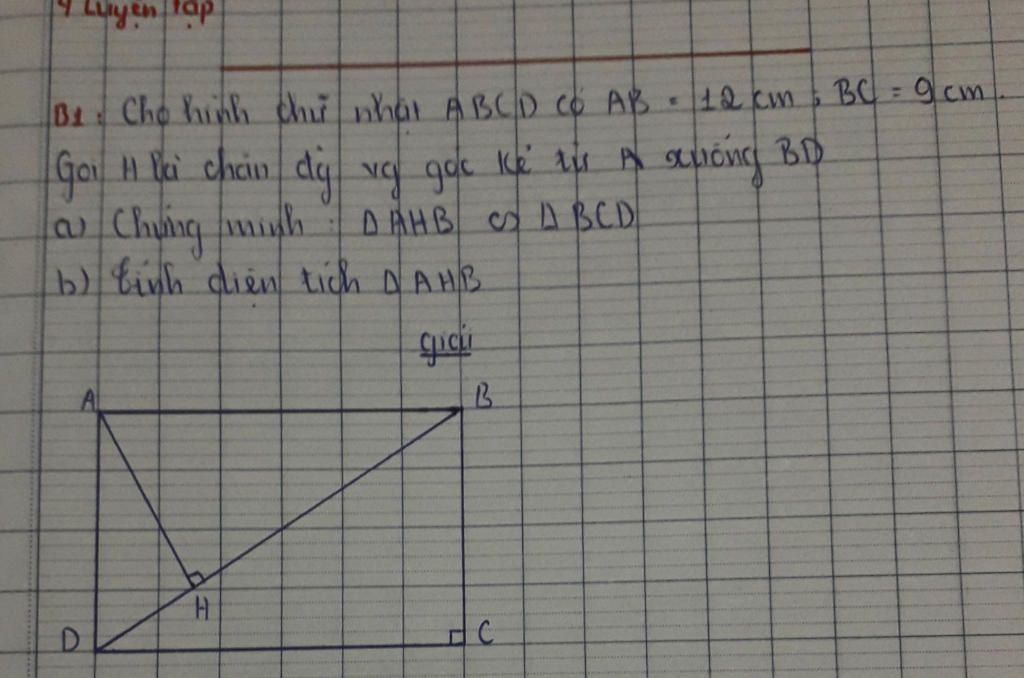 4 Luyện tập
B1: Cho hình chữ nhật ABCD có AB = 12 cm, BC = 9 cm.
Gọi H là chân đg vg góc kẻ từ A xuống BD
a) Chứng minh: Δ AHB ∽ Δ BCD
b) tính diện tích Δ AHB
giải
A B
H
D C